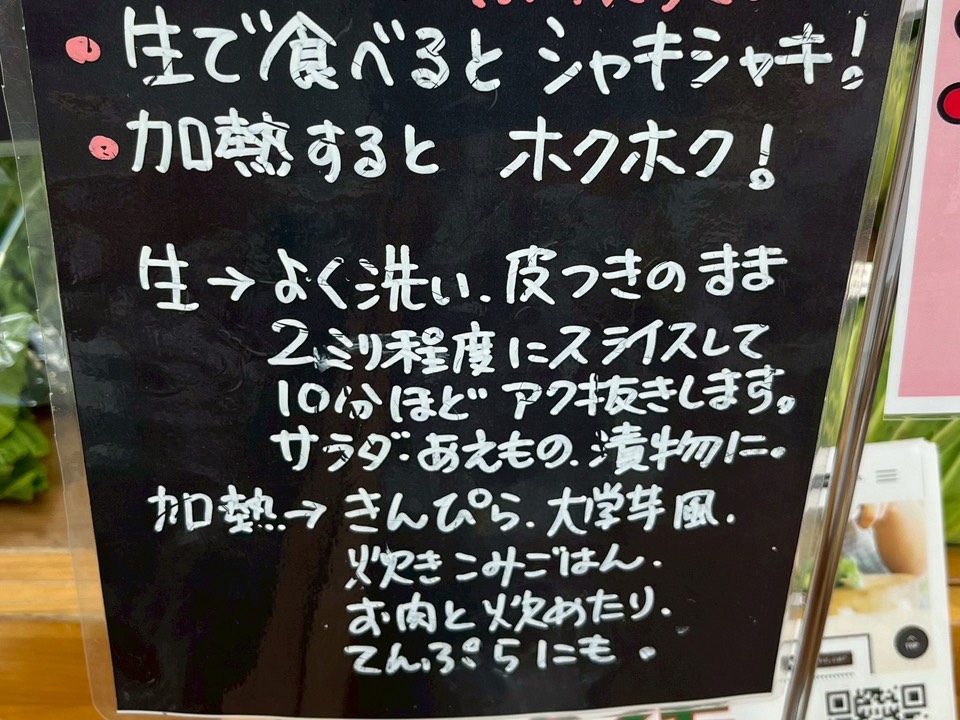 生で食べるとシャキシャキ!
加熱するとホクホク!
生→よく洗い、皮つきのまま
2ミリ程度にスライスして
10分ほどアク抜きします。
サラダ・あえもの、漬物に。
加熱→きんぴら、大学芋風、
炊きこみごはん、
お肉と炊めたり、
てんぷらにも。